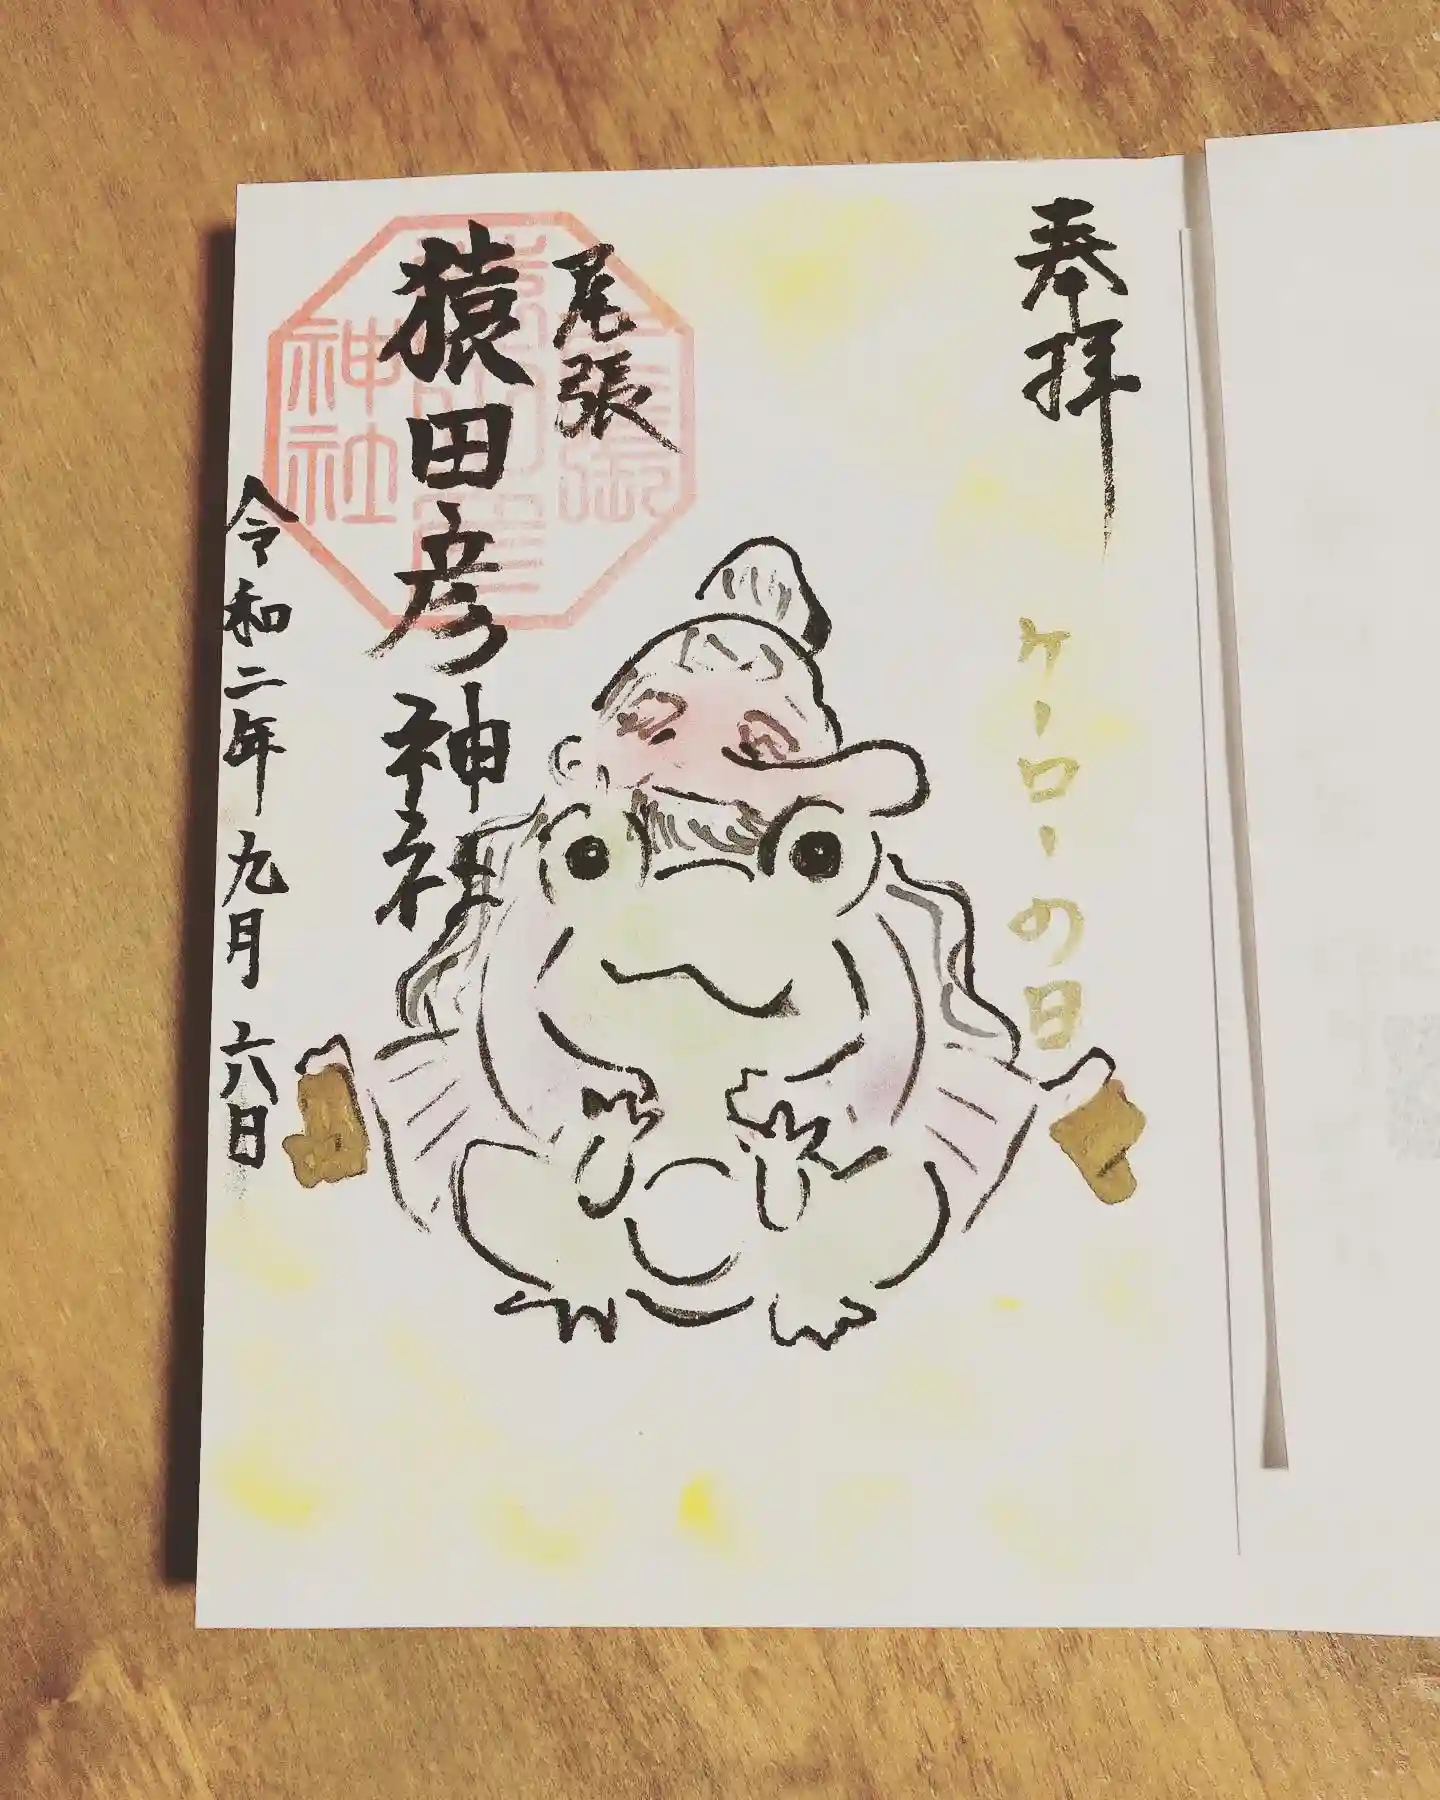 奉拝
ケーローの日
尾張
猿田彦神社
令和二年九月六日
神社